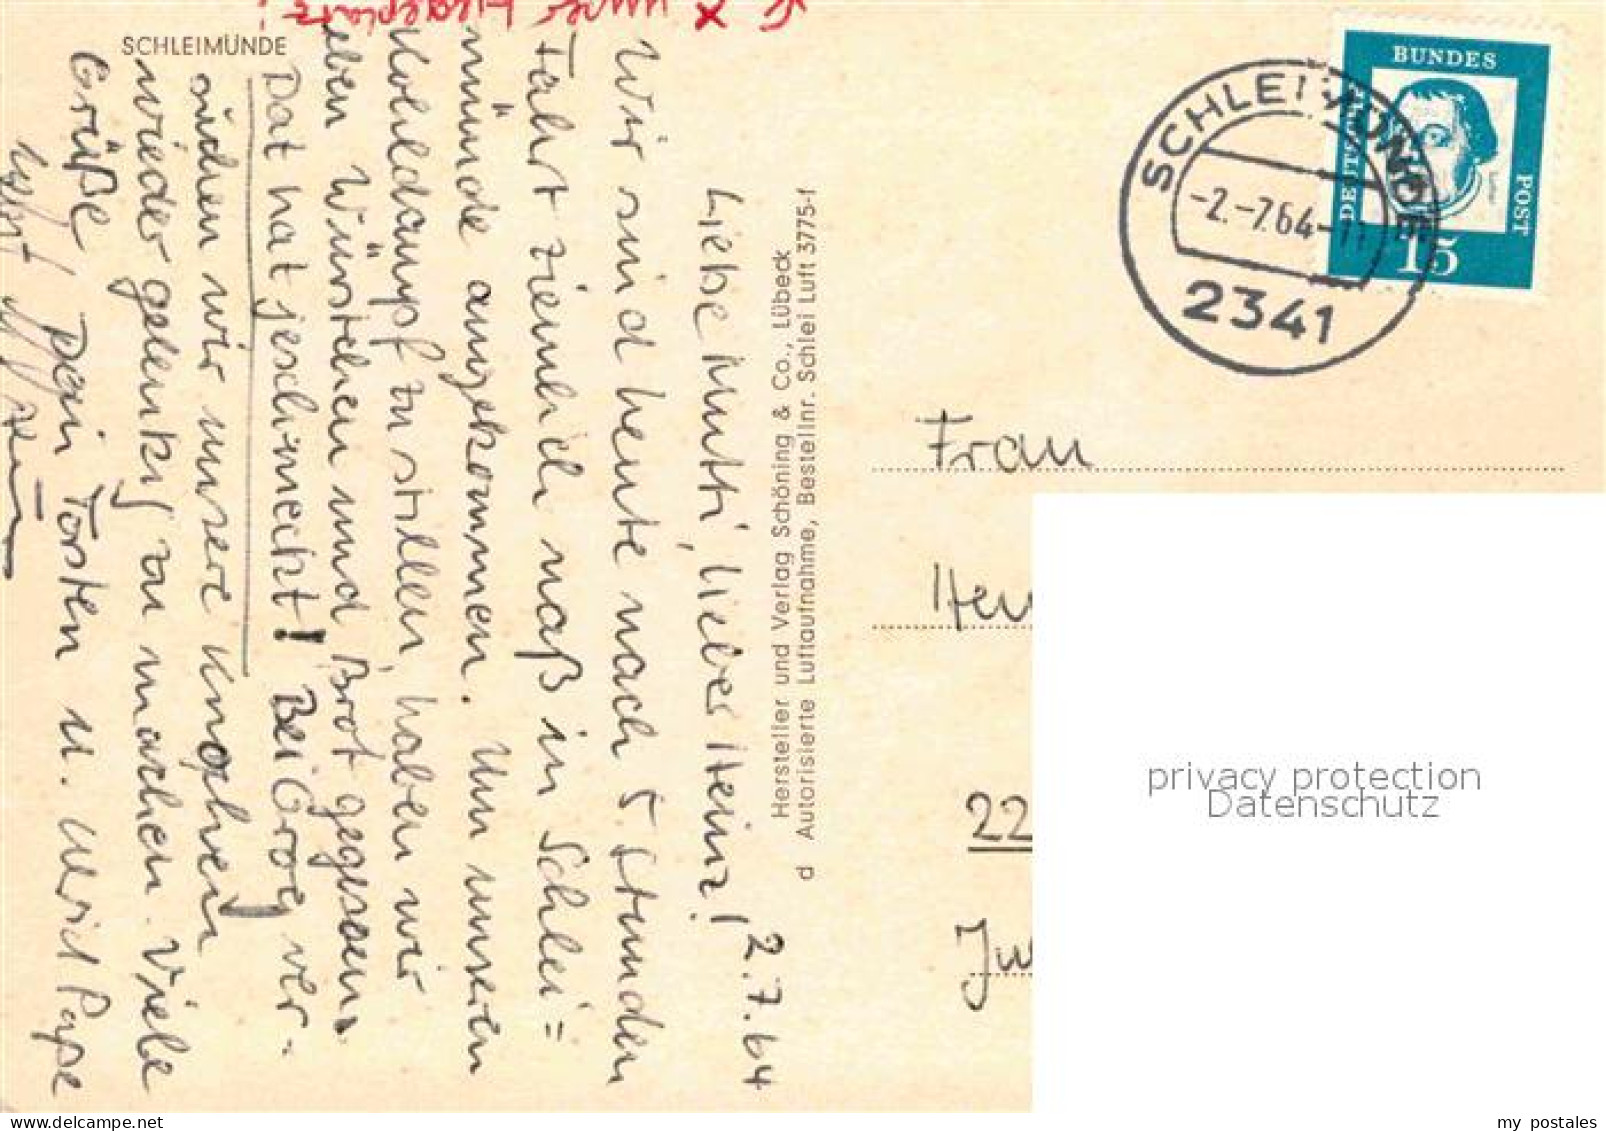 SCHLEIMÜNDE
x unser Liegeplatz!
2.7.64
Liebe Mutti, lieber Heinz!
Wir sind heute nach 5 stunden
Fahrt ziemlich naß in Schlei=
münde angekommen. Um unseren
Kohldampf zu stillen, haben wir
eben Würstchen und Brot gegessen.
Dat hat jeschmeckt! Bei Grog ver-
suchen wir unsere Knochen
wieder gelenkig zu machen. Viele
Grüße Dein Torsten u. Ulrich Pape
Hersteller und Verlag Schöning & Co., Lübeck
d Autorisierte Luftaufnahme, Bestellnr. Schlei Luft 3775-f
SCHLEIMÜNDE
-2.-7.64-11
2341
DEUTSCHE
BUNDES
POST
15
Frau
22
privacy protection
Datenschutz
my_postales